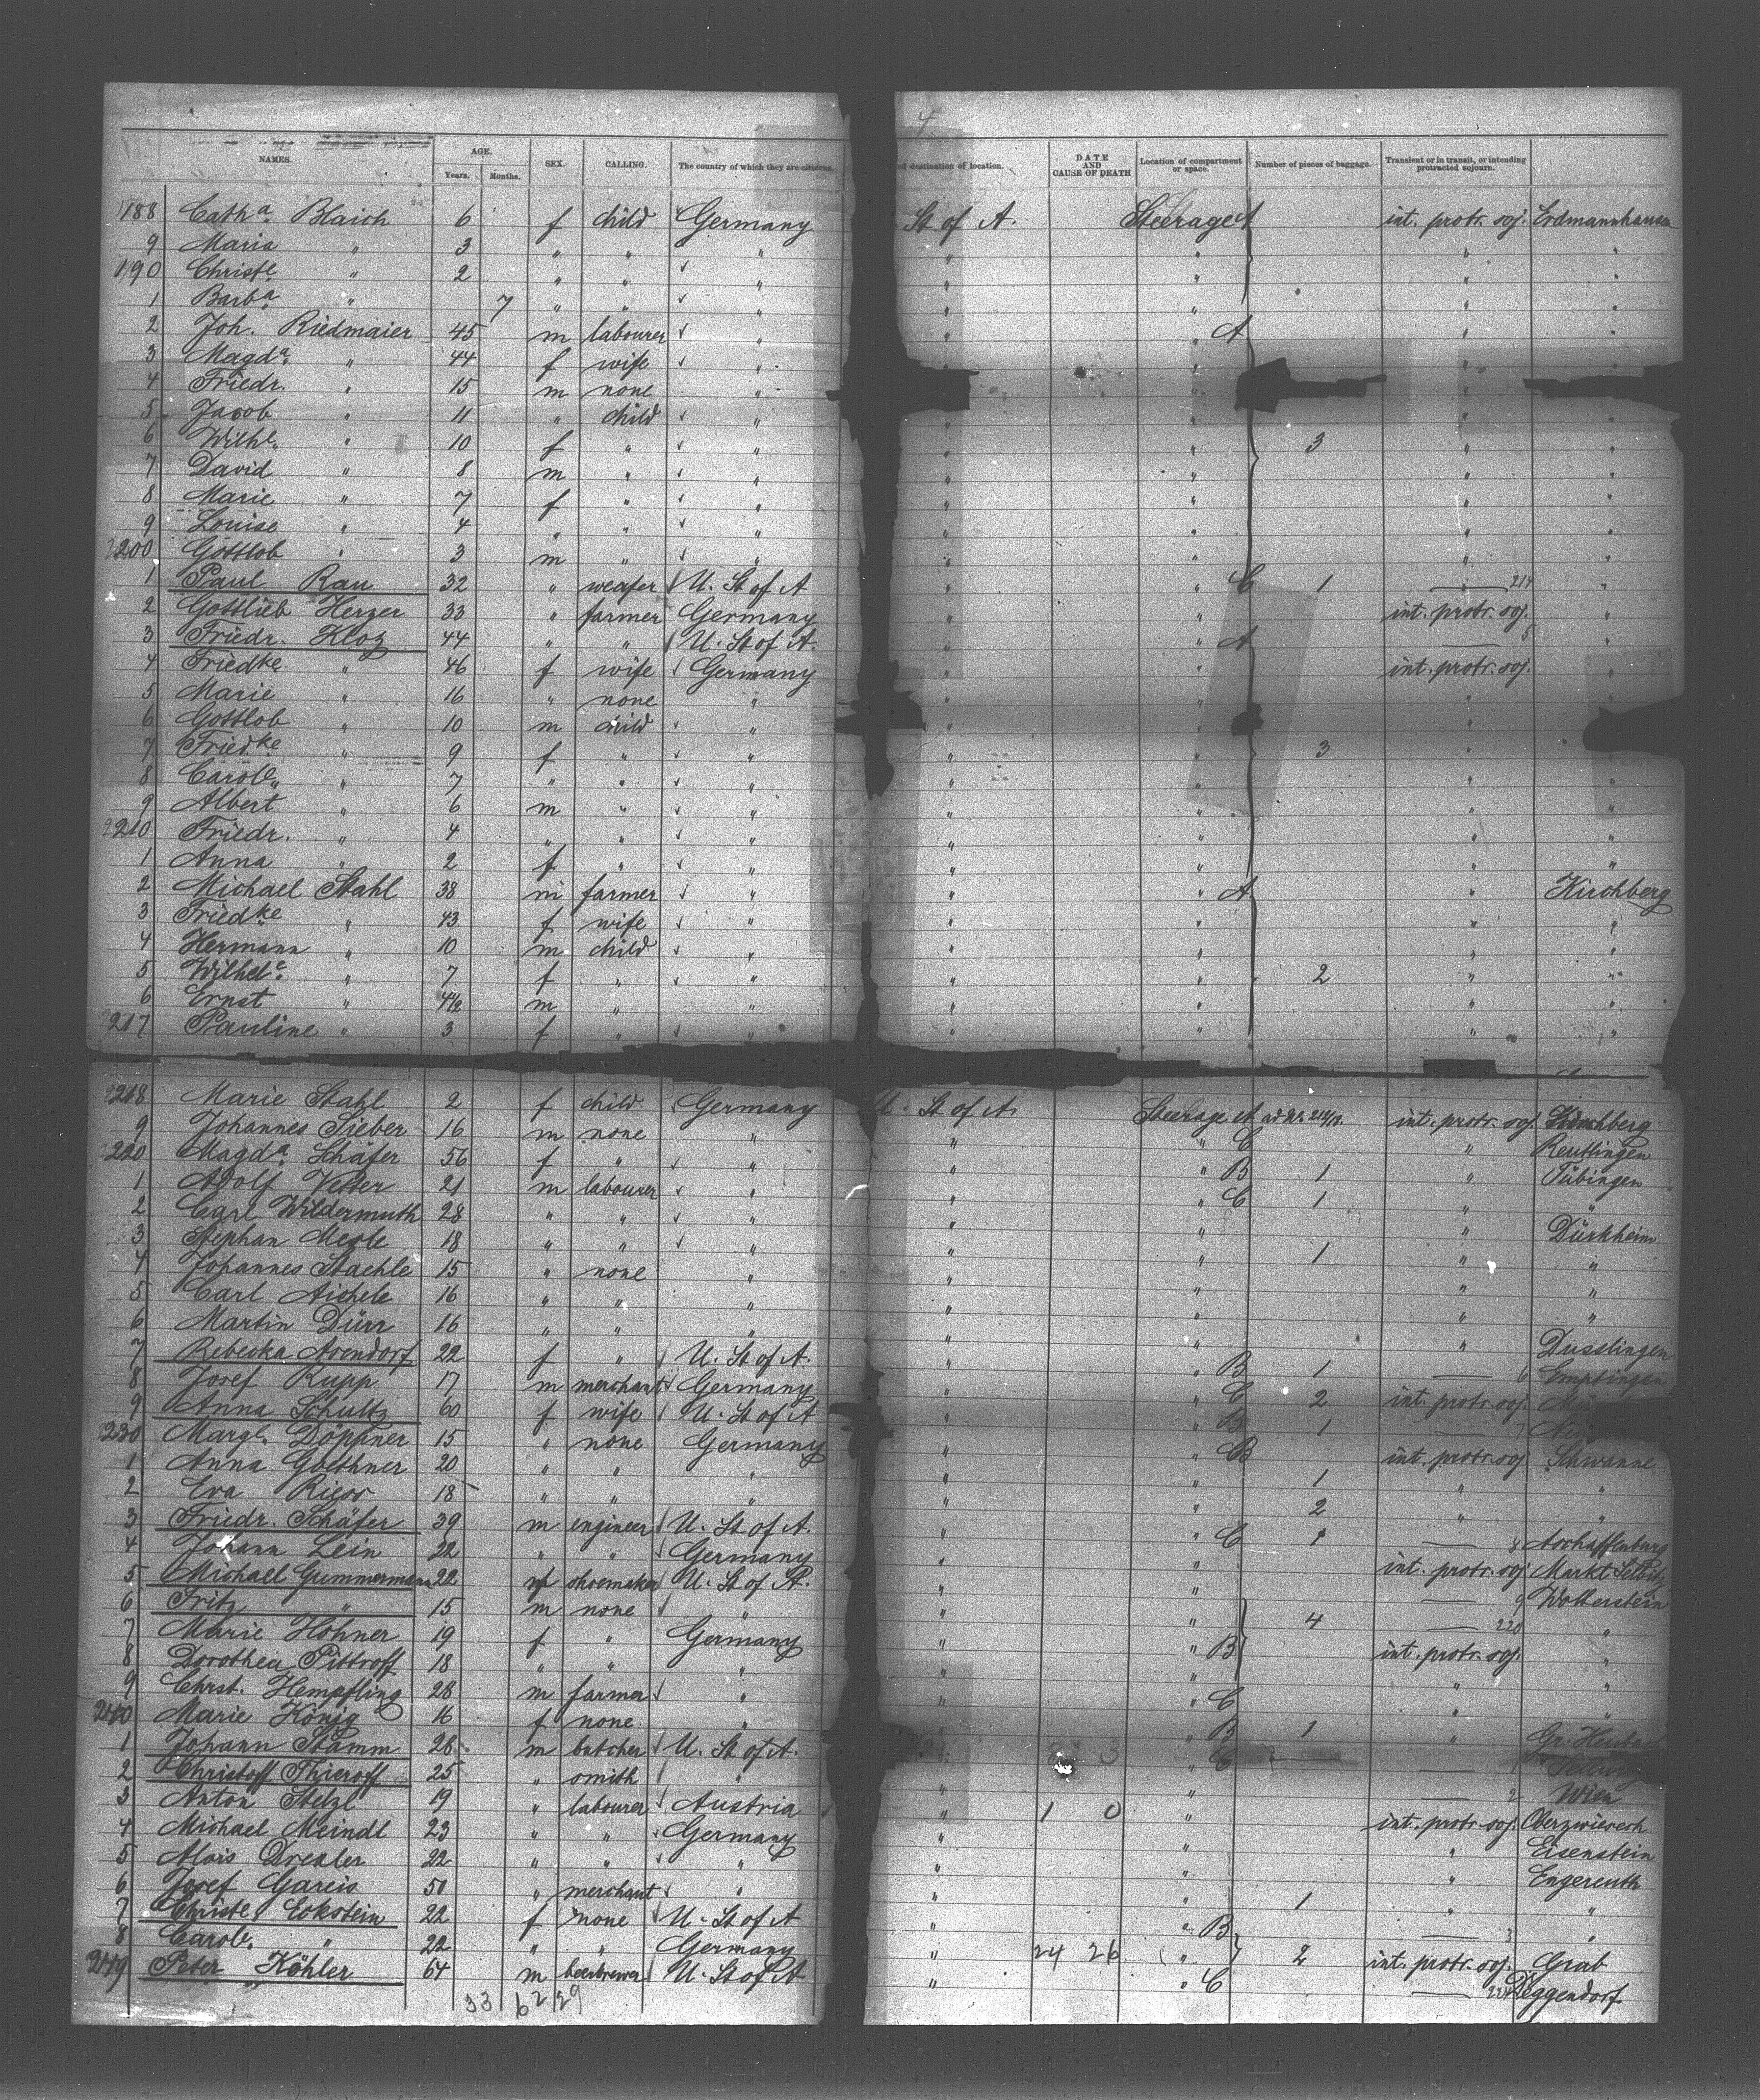 4
NAMES. AGE. Years. Months. SEX. CALLING. The country of which they are citizens. d destination of location. DATE AND CAUSE OF DEATH Location of compartment or space. Number of pieces of baggage. Transient or in transit, or intending protracted sojourn.
188 Catha Blaich 6 f child Germany St of A. Steerage A int. protr. soj. Erdmannhausen
9 Maria " 3 " " " " " " "
190 Christe " 2 " " " " " " "
1 Barba " 7 " " " " " " "
2 Joh. Riedmaier 45 m labourer " " " A " "
3 Magda " 44 f wife " " " " "
4 Friedr. " 15 m none " " " "
5 Jacob " 11 " child " " " " "
6 Wilhe " 10 f " " " " 3 " "
7 David " 8 m " " " " " "
8 Marie " 7 f " " " " " "
9 Louise " 4 " " " " " " "
2200 Gottlob " 3 m " " " " " "
1 Paul Rau 32 " weafer U. St of A " " C 1 " 214 "
2 Gottlieb Herzer 33 " farmer Germany " " int. protr. soj. "
3 Friedr. Kloz 44 " " U. St of A. " " A 5 "
4 Friedke " 46 f wife Germany " " int. protr. soj. "
5 Marie " 16 " none " " " " "
6 Gottlob " 10 m child " " " "
7 Friedke " 9 f " " " " 3 "
8 Carole " 7 " " " " " " "
9 Albert " 6 m " " " " " "
2210 Friedr. " 4 " " " " " " "
1 Anna " 2 f " " " " " "
2 Michael Stahl 38 m farmer " " " A " Kirchberg
3 Friedke " 43 f wife " " " " "
4 Hermann " 10 m child " " " " "
5 Wilhele " 7 f " " " " 2 " "
6 Ernst " 4 1/2 m " " " " " "
2217 Pauline " 3 f " " " " " "
2218 Marie Stahl 2 f child Germany U. St of A. Steerage A int. protr. soj. Kirchberg
9 Johannes Sieber 16 m none " " " C " Reutlingen
220 Magda Schäfer 56 f " " " " B 1 " Tübingen
1 Adolf Vetter 21 m labourer " " " C 1 " "
2 Carl Wildermuth 28 " " " " " " Dürkheim
3 Stephan Merle 18 " " " " " 1 " "
4 Johannes Staehle 15 " none " " " " "
5 Carl Aichele 16 " " " " " " "
6 Martin Dürr 16 " " " " " " Dusslingen
7 Rebecka Arendorf 22 f " U. St of A. " " B 1 6 Empfingen
8 Josef Rupp 17 m merchant Germany " " C 2 int. protr. soj.
9 Anna Schultz 60 f wife U. St of A " " B 1 7
2230 Marge. Doppner 15 " none Germany " " B int. protr. soj. Schwanne
1 Anna Goethner 20 " " " " " 1 " "
2 Eva 18 " " " " " 2 " "
3 Friedr. Schäfer 39 m engineer U. St of A. " " C 1 8 Aschaffenburg
4 Johann Lein 22 " " Germany " " int. protr. soj. Markt Selbitz
5 Michael Gummermann 22 m shoemaker U. St of A. " " 9 Wolterstein
6 Fritz " 15 m none " " " 4 220 "
7 Marie Höhner 19 f " Germany " " B int. protr. soj. "
8 Dorothea Pittroff 18 " " " " " " "
9 Christ. Hempfling 28 m farmer " " " C " "
2240 Marie König 16 f none " " " B 1 " Gr. Heubach
1 Johann Stamm 26 m butcher U. St of A. " " C 1
2 Christoff Thieroff 25 " smith " " " 2 Wien
3 Anton Stelzl 19 " labourer Austria " 1 0 " int. protr. soj. Oberzwieserh
4 Michael Meindl 23 " " Germany " " " Eisenstein
5 Alois Drexler 22 " " " " " " Engereuth
6 Josef Gareis 50 " merchant " " " 1 " "
7 Christe. Eckstein 22 f none U. St of A " " B 3 "
8 Carole. " 22 " " Germany " 24 26 " 2 int. protr. soj. Grab
2249 Peter Köhler 64 m beerbrewer U. St of A " " C 224 Deggendorf
33 62 29